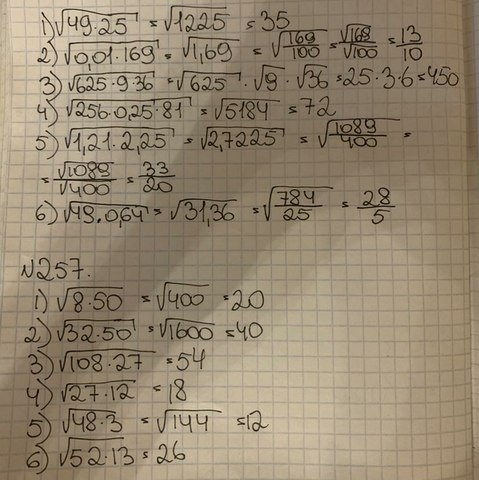 1) √49·25 = √1225 = 35
2) √0,01·169 = √1,69 = √169/100 = √169/√100 = 13/10
3) √625·9·36 = √625 · √9 · √36 = 25·3·6 = 450
4) √256·0,25·81 = √5184 = 72
5) √1,21·2,25 = √2,7225 = √1089/400 =
= √1089/√400 = 33/20
6) √49·0,64 = √31,36 = √784/25 = 28/5
N257.
1) √8·50 = √400 = 20
2) √32·50 = √1600 = 40
3) √108·27 = 54
4) √27·12 = 18
5) √48·3 = √144 = 12
6) √52·13 = 26